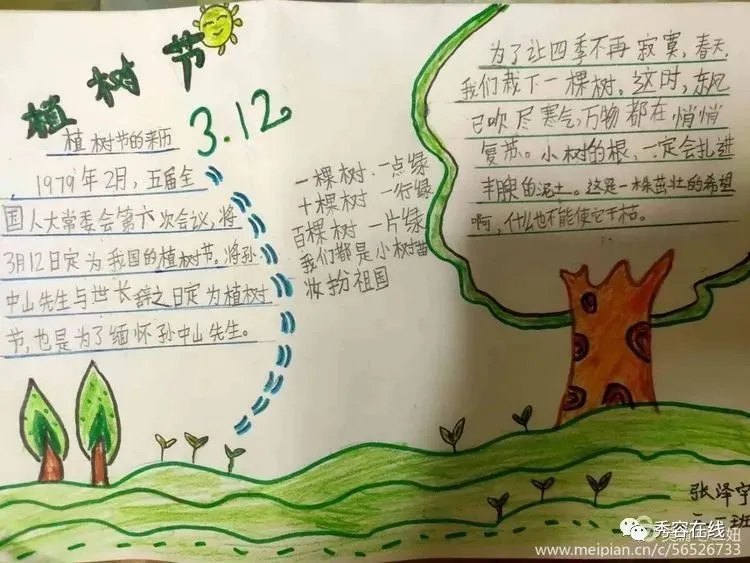 植树节
3.12
植树节的来历
1979年2月，五届全
国人大常委会第六次会议，将
3月12日定为我国的植树节。将孙
中山先生与世长辞之日定为植树
节，也是为了缅怀孙中山先生。
一棵树 一点绿
十棵树 一行绿
百棵树 一片绿
我们都是小树苗
妆扮祖国
为了让四季不再寂寞，春天
我们栽下一棵树。这时，东风
已吹尽寒气，万物都在悄悄
复苏。小树的根，一定会扎进
丰腴的泥土。这是一株茁壮的希望
啊，什么也不能使它干枯。
张泽宇
班
秀容在线
www.meipian.cn/c/56526733